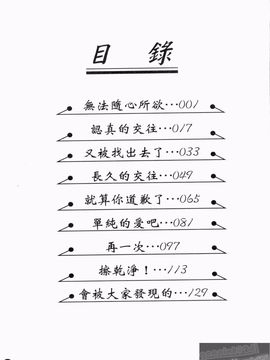 目 錄
無法隨心所欲…001
認真的交往…017
又被找出去了…033
長久的交往…049
就算你道歉了…065
單純的愛吧…081
再一次…097
擦乾淨！…113
會被大家發現的…129